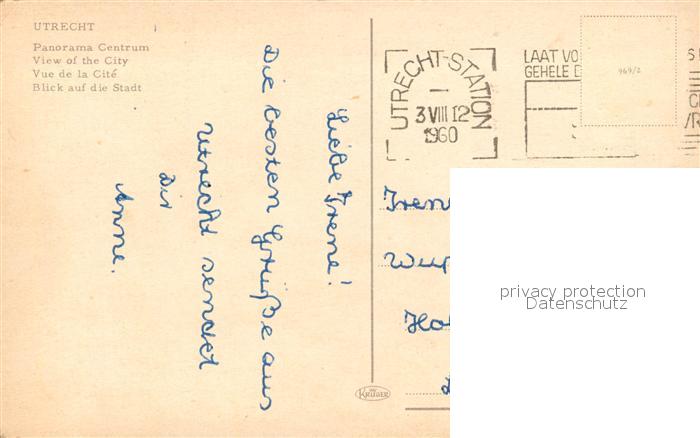 UTRECHT
Panorama Centrum
View of the City
Vue de la Cité
Blick auf die Stadt
Liebe Irene!
Die besten Grüße aus
Utrecht sendet
Dir
Anne.
UTRECHT-STATION
3 VIII 12
1960
LAAT VO
GEHELE D
969/2
Iren
Wup
Ho
KRÜGER
privacy protection
Datenschutz